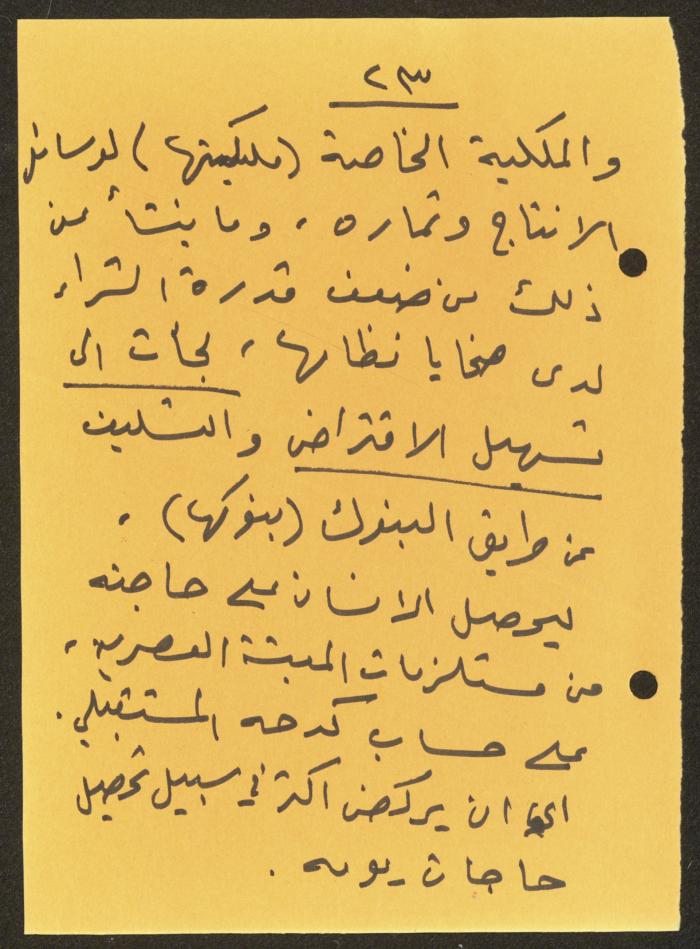 ٢٣
والملكية الخاصة (ملكيتها) لوسائل
الانتاج وثماره، وما ينشأ عن
ذلك من ضعف قدرة الشراء
لدى ضحايا نظامها، لجأت الى
تسهيل الاقتراض والتسليف
عن طريق البنوك (بنوكها)،
ليحصل الانسان على حاجته
من مستلزمات المعيشة العصرية،
على حساب كدحه المستقبلي.
اي ان يركض اكثر في سبيل تحصيل
حاجات يومه.